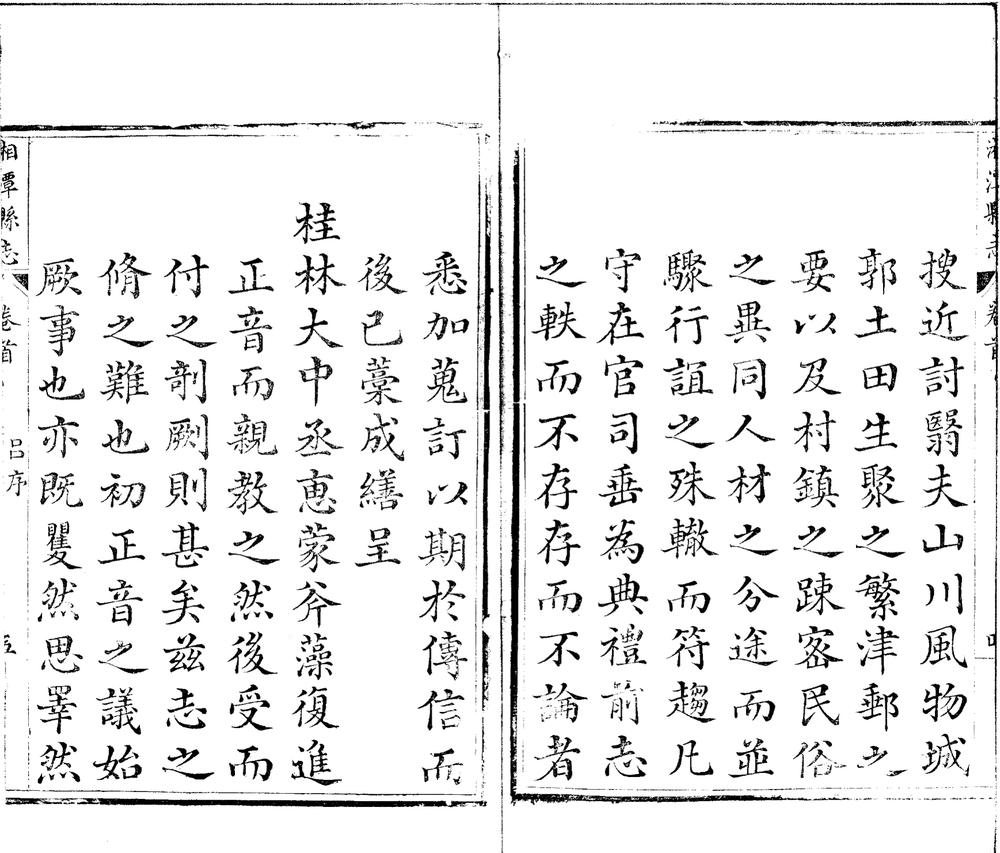 搜近討翳夫山川風物城
郭土田生聚之繁津郵之
要以及村鎮之踈宻民俗
之異同人材之分途而並
驟行誼之殊轍而符趨凡
守在官司垂為典禮前志
之軼而不存存而不論者
悉加蒐訂以期於傳信而
後已藁成繕呈
桂林大中丞恵蒙斧藻復進
正音而親教之然後受而
付之剞劂則甚矣兹志之
脩之難也初正音之議始
厥事也亦既矍然思睪然
相潭縣志 卷首 呂序 五